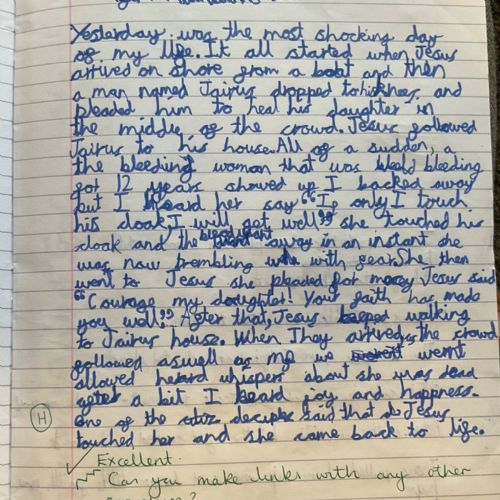 Yesterday was the most shocking day
of my life. It all started when Jesus
arrived on shore from a boat and then
a man named Jairus dropped to his knees and
pleaded him to heal his daughter in
the middle of the crowd. Jesus followed
Jairus to his house. All of a sudden, a
the bleeding woman that was bleeding
for 12 years showed up I backed away
but I heard her say "If only I touch
his cloak, I will get well" she touched his
cloak and the bleed went away in an instant she
was now trembling with fear. She then
went to Jesus she pleaded for mercy Jesus said
"Courage my daughter! Your faith has made
you well". After that, Jesus keeped walking
to Jairus house. When They arrived, the crowd
followed aswell as me we went
allowed heard whispers about she was dead
after a bit I heard joy and happness.
One of the said that Jesus
touched her and she came back to life.
H
Excellent.
Can you make links with any other